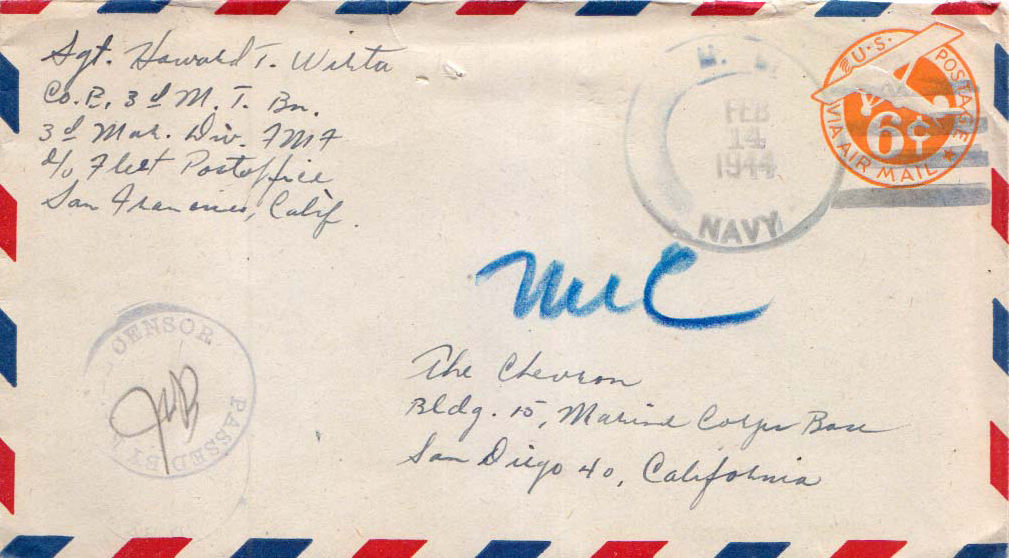 Sgt. Howard T. Wikta
Co. B, 3d M. T. Bn.
3d Mar. Div. FMF
c/o Fleet Postoffice
San Francisco, Calif.
FEB
14
1944
NAVY
U.S. POSTAGE
6¢
VIA AIR MAIL
The Chevron
Bldg. 15, Marine Corps Base
San Diego 40, California
CENSOR
PASSED BY